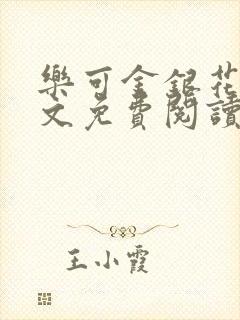 樂可金銀花
文免費閱讀
王小霞